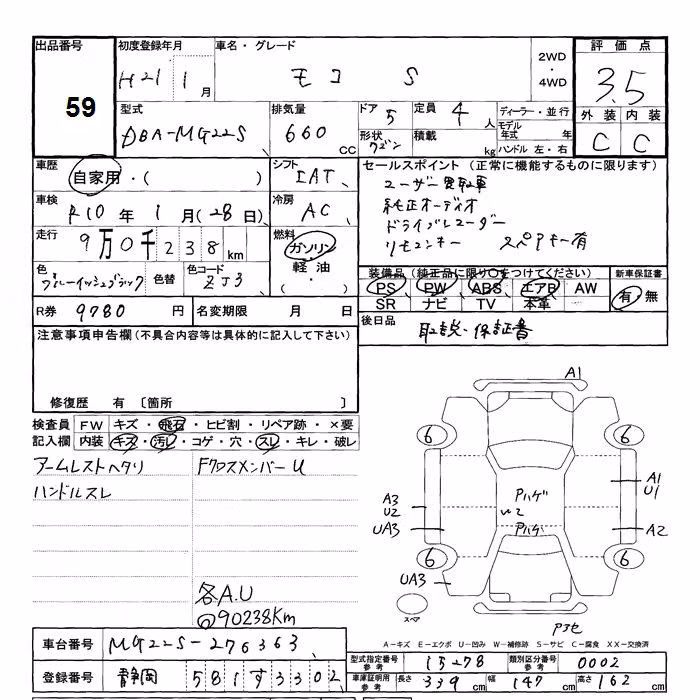 出品番号 初度登録年月 車名・グレード 評価点
59 H21 1月 モコ S 2WD・4WD 3.5
型式 排気量 ドア 5 定員 4人 ディーラー・並行 外装 内装
DBA-MG22S 660 CC 形状 ワゴン 積載 kg モデル年式 年 ハンドル 左・右 C C
車歴 自家用・( ) シフト IAT セールスポイント (正常に機能するものに限ります)
車検 R10年 1月(28日) 冷房 AC ユーザー買取車
純正オーディオ
ドライブレコーダー
リモコンキー スペアキー有
走行 9万0千238km 燃料 ガソリン・軽油・( )
色 ブルーイッシュブラック 色替 色コード ZJ3
装備品 (純正品に限り○をつけてください) 新車保証書
PS PW ABS エアB AW 有・無
SR ナビ TV 本革
R券 9780円 名変期限 月 日
後日品 取説・保証書
注意事項申告欄(不具合内容等は具体的に記入して下さい)
修復歴 有 〔箇所 〕
検査員記入欄 FW キズ・飛石・ヒビ割・リペア跡・×要
内装 キズ・汚レ・コゲ・穴・スレ・キレ・破レ
アームレストヘタリ Fクロスメンバー U
ハンドルスレ
各A.U
@90238Km
A1
6 6
A1
U1
Pハゲ
A3
U2
W2
UA3 Pハゲ A2
6 6
UA3
スペア
A-キズ E-エクボ U-凹み W-補修跡 S-サビ C-腐食 XX-交換済
車台番号 MG22S-276363
型式指定番号 参考 15278 類別区分番号 参考 0002
登録番号 静岡 581 す 3302
車庫証明用 参考 長さ 339cm 幅 147cm 高さ 162cm